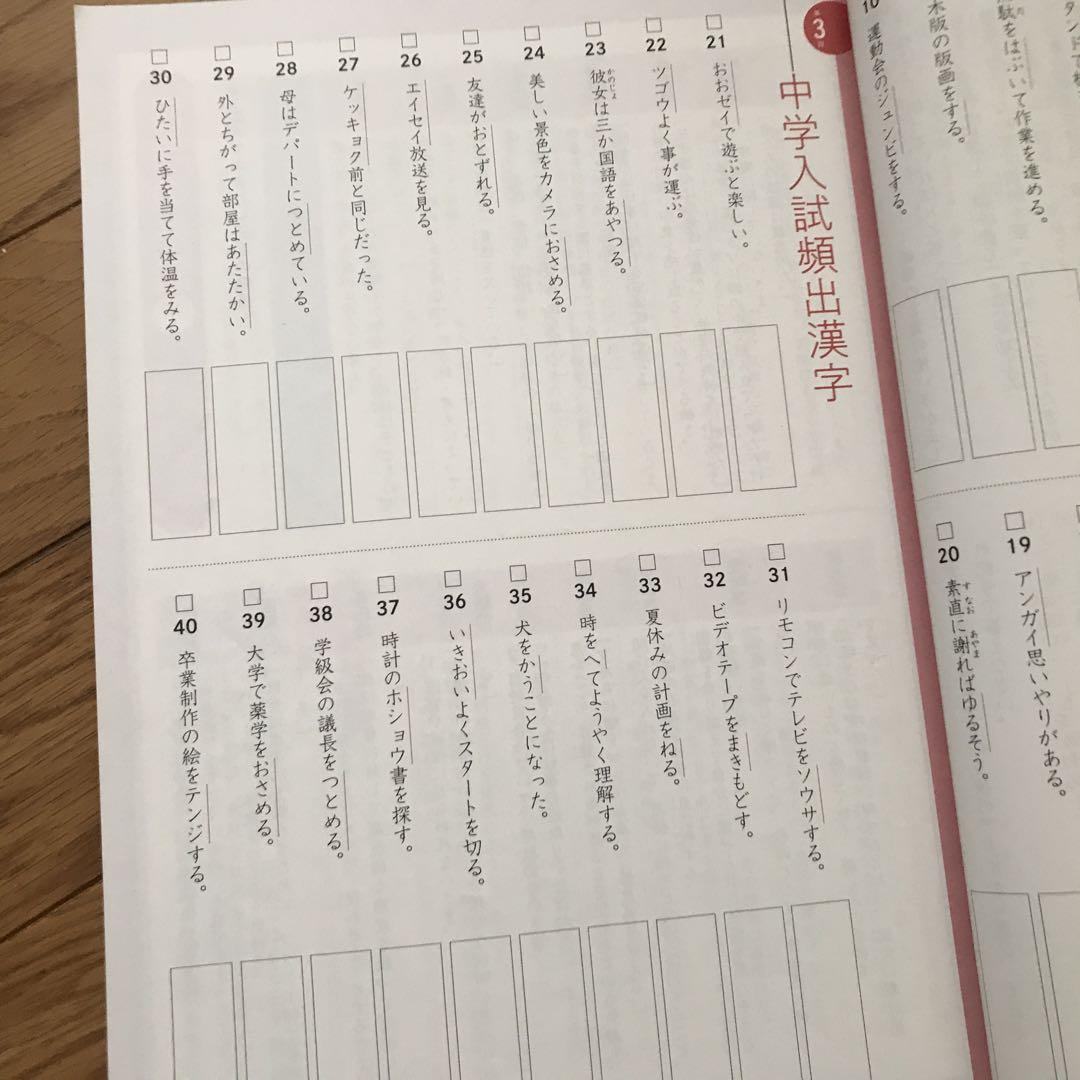 10 運動会のジュンビをする。
木版の版画をする。
をはぶいて作業を進める。
19 アンガイ思いやりがある。
20 素直に謝ればゆるそう。
すなお
あやま
第3回
中学入試頻出漢字
21 おおゼイで遊ぶと楽しい。
22 ツゴウよく事が運ぶ。
23 彼女は三か国語をあやつる。
かのじょ
24 美しい景色をカメラにおさめる。
25 友達がおとずれる。
26 エイセイ放送を見る。
27 ケッキョク前と同じだった。
28 母はデパートにつとめている。
29 外とちがって部屋はあたたかい。
30 ひたいに手を当てて体温をみる。
31 リモコンでテレビをソウサする。
32 ビデオテープをまきもどす。
33 夏休みの計画をねる。
34 時をへてようやく理解する。
35 犬をかうことになった。
36 いきおいよくスタートを切る。
37 時計のホショウ書を探す。
38 学級会の議長をつとめる。
39 大学で薬学をおさめる。
40 卒業制作の絵をテンジする。